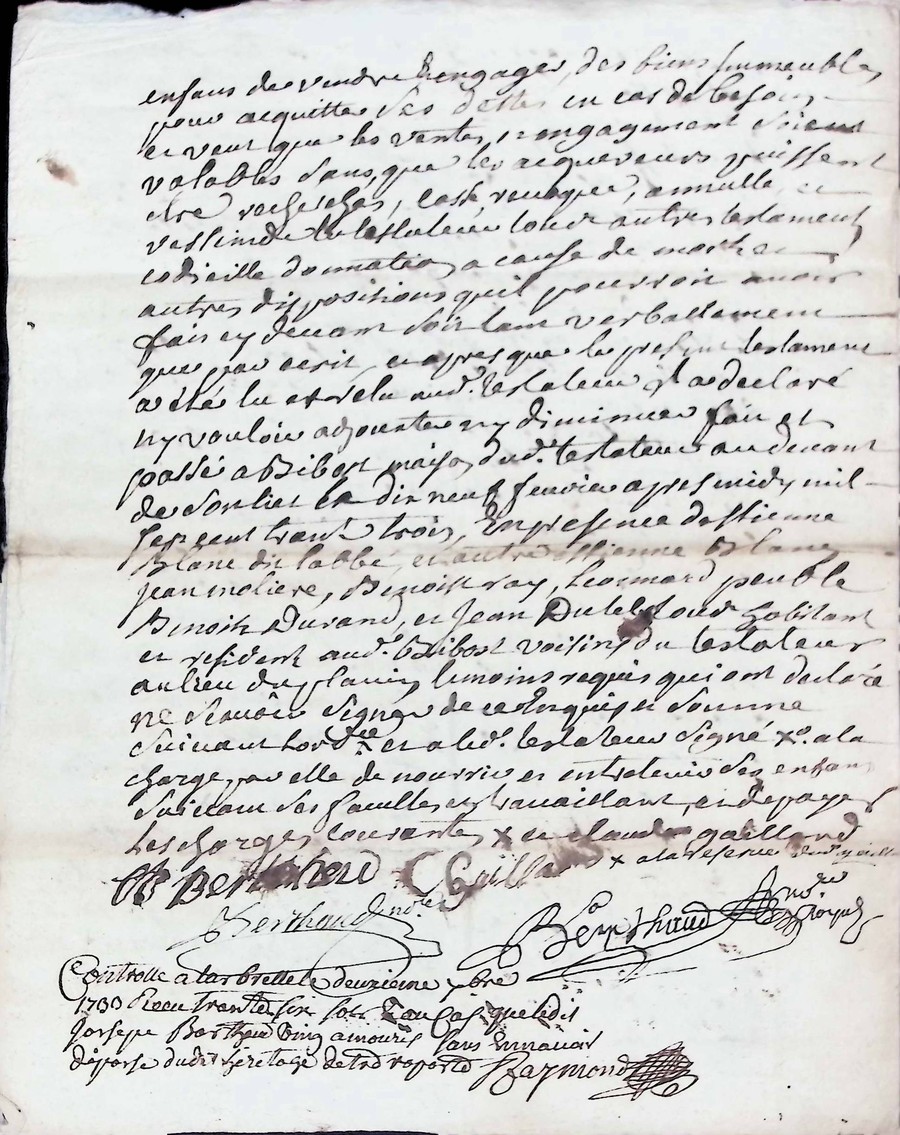 enfans de vendre & engager, des biens jmmeubles
pour acquitter ses dettes en cas de besoin,
et veut que les ventes, et engagement soient
valables sans, que les acquereurs puissent
estre recherches, casse, revoque, annulle, et
le testateur tous autres testament
codicille donnation a cause de mort et
autres dispositions quil pourroit avoir
fait cy devant soit tant verballement
que par ecrit, et apres que le present testament
a été lu et relu aud. testateur jl a declaré
ny vouloir adjouter ny diminuer fait et
passé a Bibost maison dud. testateur au devant
de le dix neuf feuvrier apres midy mil
sept cent trante trois, En presence destienne
Blanc dit labbé, et autre estienne Blanc
jean moliere, Benoist ray, Leonnard peuble
Benoist Durand, et Jean tous habitant
et resident aud. Bibost voisins du testateur
au lieu du temoins requis qui ont declaré
ne scavoir signer de ce Enquis et somme
suivant lord.ce et a led. testateur signé x. a la
charge par elle de nourrir et entretenir ses enfans
suivant ses facultes et travaillant, et de payer
les charges courantes x et claude gaillard
Berthaud CGaillard x a la reserve
Berthaud no.re Berthaud no.re Royal
Controlle a larbrelle le deuxieme xbre
1733 Receu trante six sols
Joseph Berthaud sans
depose dud. heritage Raymond